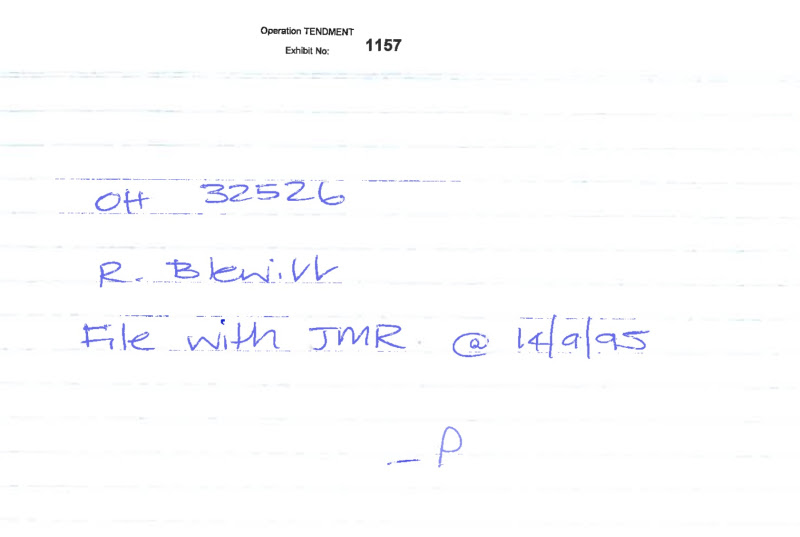 Operation TENDMENT
Exhibit No: 1157
OH 32526
R. Blewitt
File with JMR. @ 14/9/95
_ P